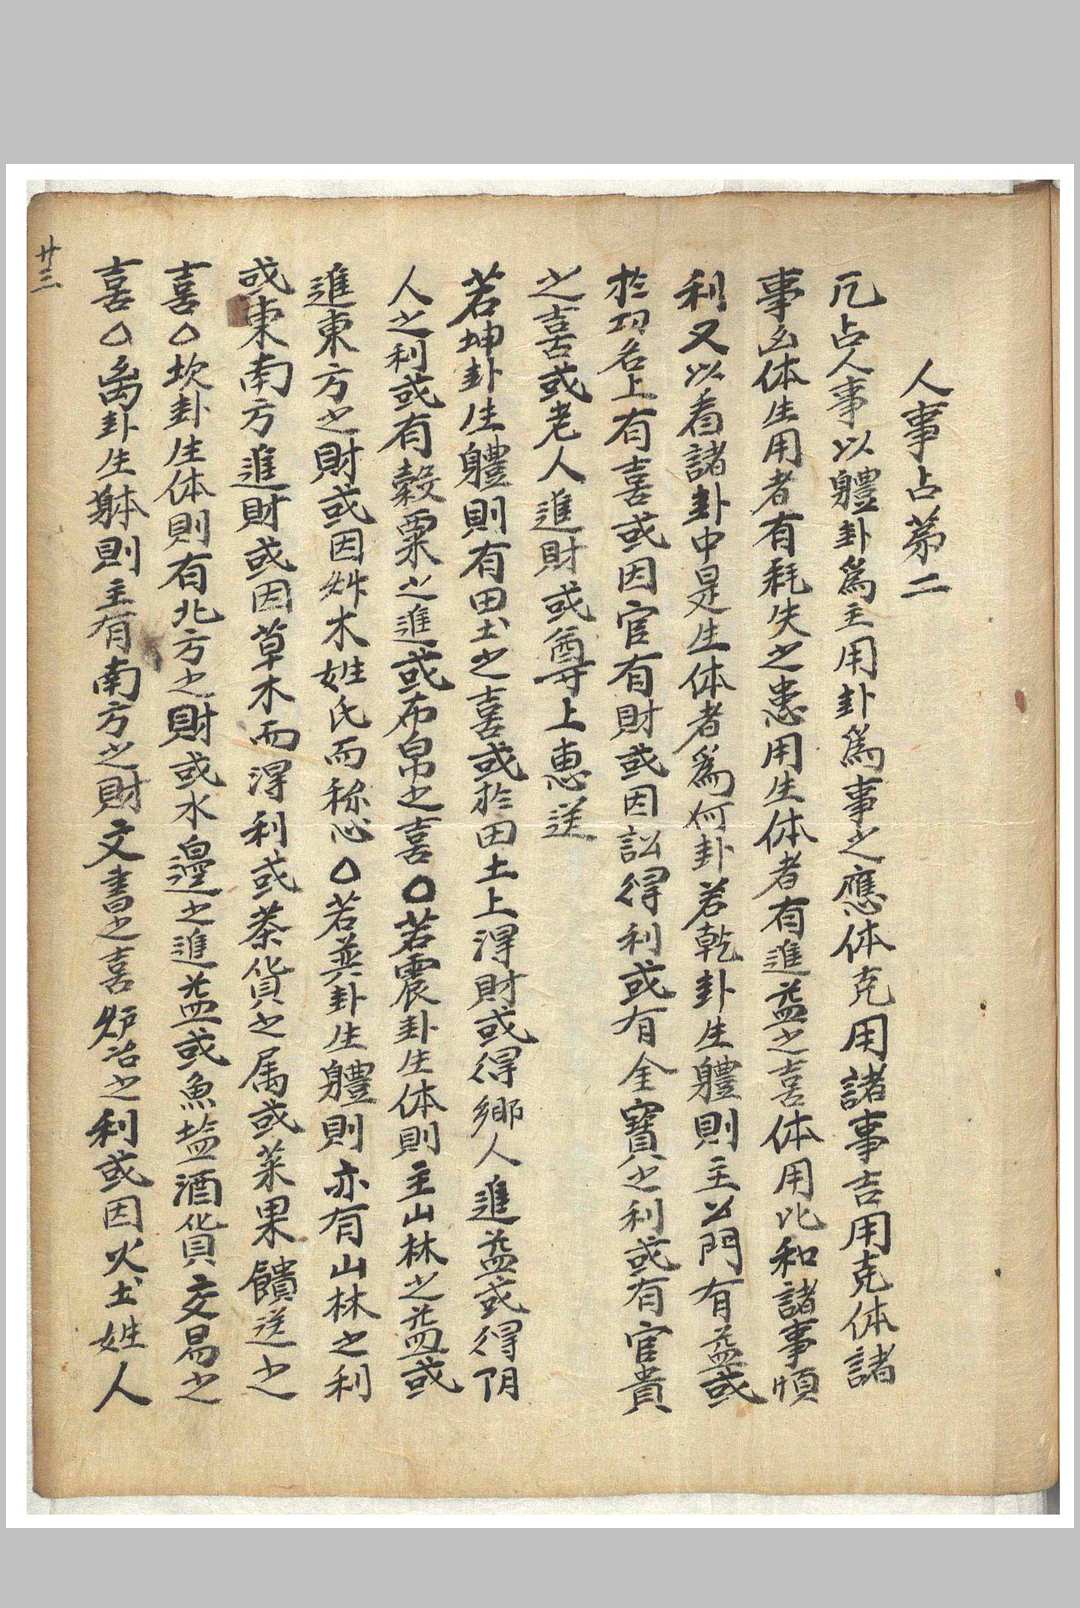 人事占第二
凡占人事以體卦爲主用卦爲事之應体克用諸事吉用克体諸
事凶体生用者有耗失之患用生体者有進益之喜体用比和諸事順
利又以看諸卦中是生体者爲何卦若乾卦生體則主公門有益或
於功名上有喜或因官有財或因訟得利或有金寶之利或有官貴
之喜或老人進財或尊上惠送
若坤卦生體則有田土之喜或於田土上得財或得鄉人進益或得阴
人之利或有穀粟之進或布帛之喜○若震卦生体則主山林之益或
進東方之財或因艸木姓氏而称心○若巽卦生體則亦有山林之利
或東南方進財或因草木而得利或茶貨之属或菜果饋送之
喜○坎卦生体則有北方之財或水邊之進益或魚塩酒貨交易之
喜○离卦生躰則主有南方之財文書之喜炉冶之利或因火土姓人
廿三